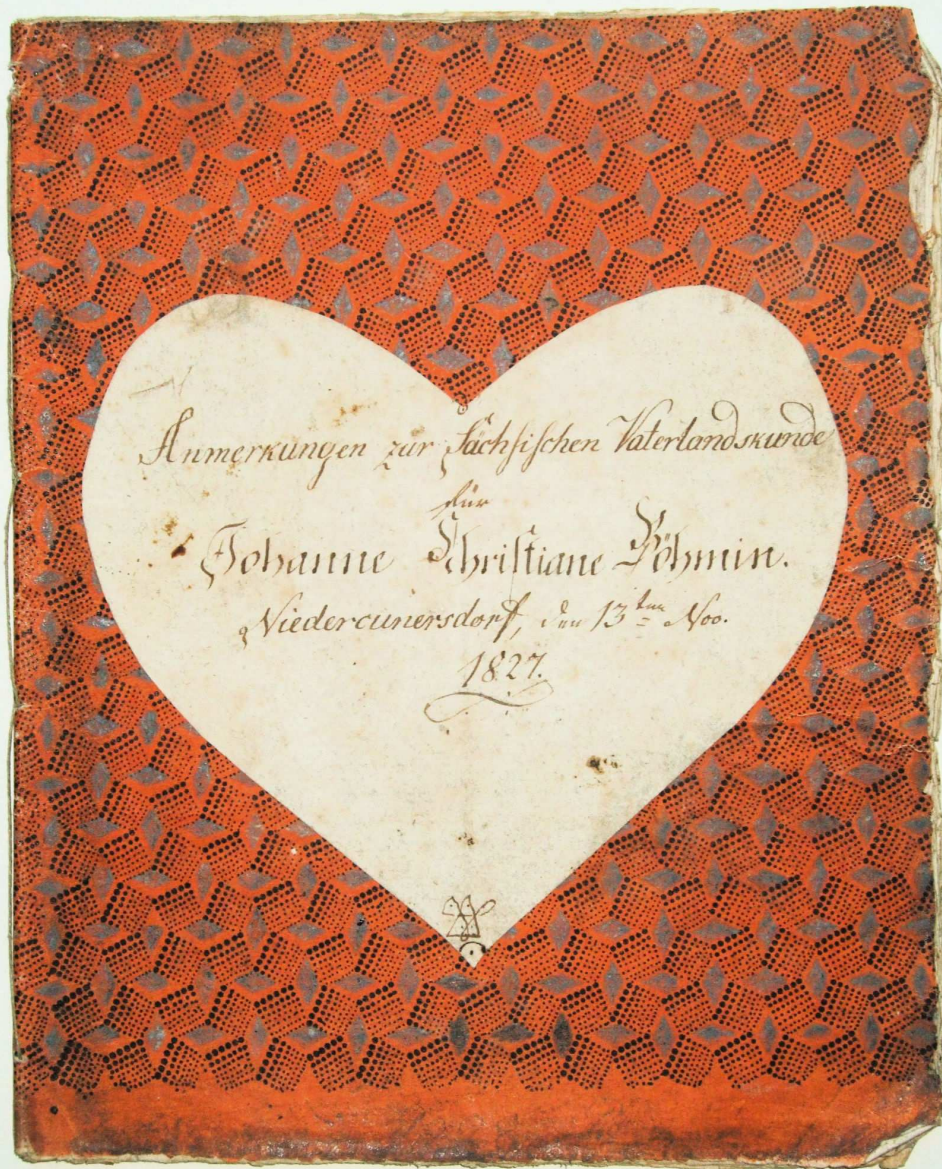 Anmerkungen zur Sächsischen Vaterlandskunde
für
Johanne Christiane Böhmin.
Niedercunersdorf, den 13ten Nov.
1827.